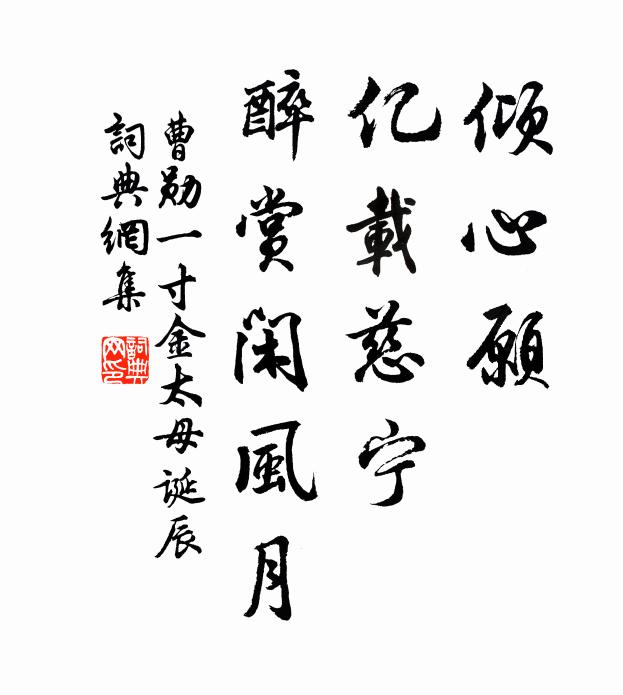 倾心愿
亿載慈宁
醉赏闲風月
曹勋一寸金太母诞辰
詞典網集
詞典网印